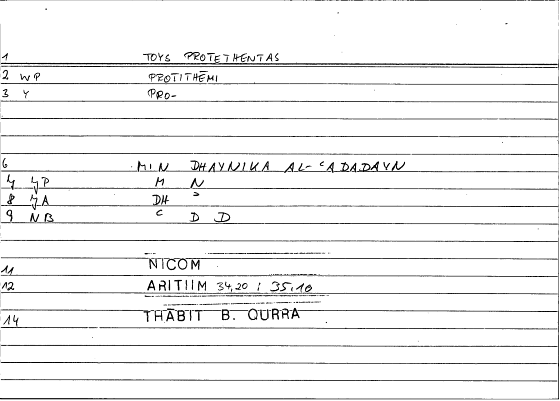 1 TOYS PROTETHENTAS
2 WP PROTITHĒMI
3 Y PRO-
6 MIN DHAYNIKA AL-ʿADADAYN
4 YP M N
8 YA DH ʾ
9 NB ʿ D D
11 NICOM
12 ARITIIM 34,20 ; 35,10
14 THĀBIT B. QURRA